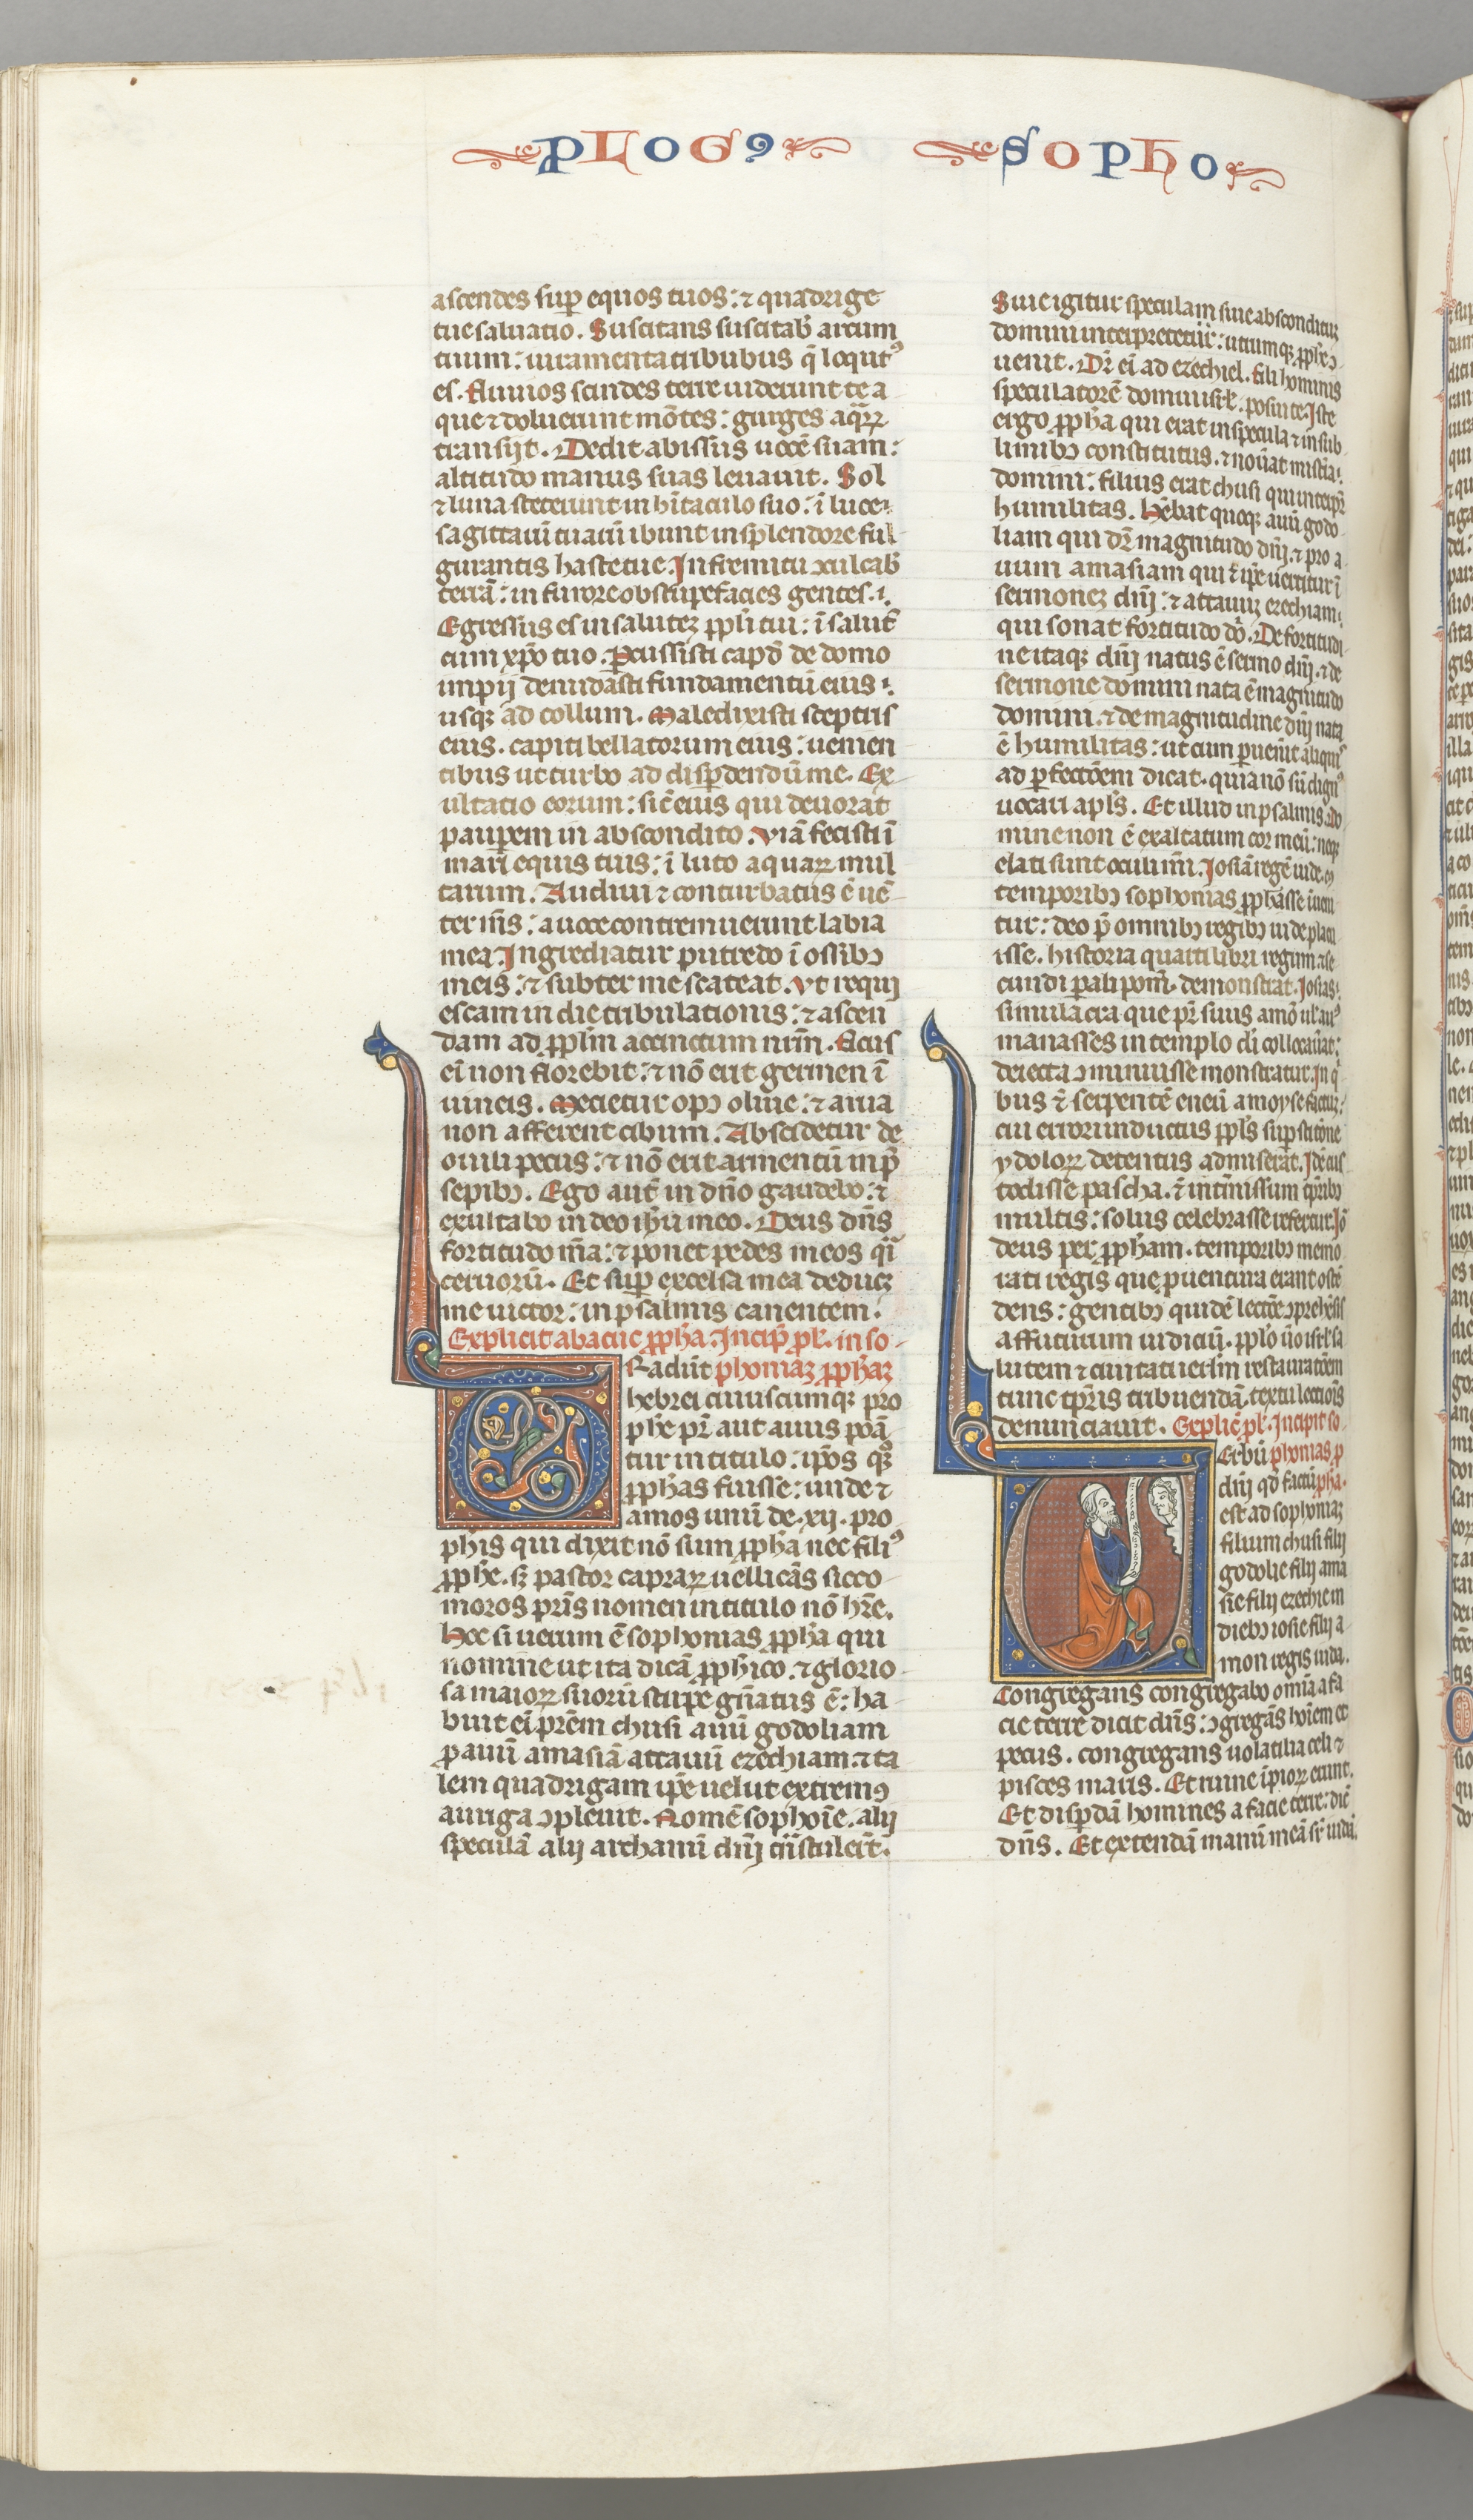 PLOGꝰ SOPHO
ascendes sup̄ equos tuos: ⁊ quadrige
tue saluatio. Suscitans suscitab̄ arcum
tuum: iuramenta tribubus q̄ locutꝰ
es. Fluuios scindes terre uiderunt te a
que ⁊ doluerunt mōtes: gurges aq̄ꝝ
transijt. Dedit abissus uocē suam:
altitudo manus suas leuauit. Sol
⁊ luna steterunt in h̄itaculo suo: ī luce
sagittaꝝ tuaꝝ ibunt in splendore ful
gurantis haste tue. In fremitu ↄculcab̄
terrā: in furore obstupefacies gentes.
Egressus es in salutē ppl̄i tui: ī salutē
cum xp̄o tuo. Percussisti capđ de domo
impij denudasti fundamentū eius
usqꝫ ad collum. Maledixisti sceptris
eius. capiti bellatorum eius: uenien
tibus ut turbo ad disp̄dendū me. Ex
ultatio eorum: sic̄ eius qui deuorat
paup̄em in abscondito. Viā fecisti ī
mari equis tuis: ī luto aquaꝝ mul
tarum. Audiui ⁊ conturbatus ē uē
ter m̄s: a uoce contremuerunt labia
mea. Ingrediatur putredo ī ossibꝫ
meis: ⁊ subter me scateat. Vt requi
escam in die tribulationis: ⁊ ascen
dam ad ppl̄m accinctum nr̄m. Ficus
ei̅ non florebit: ⁊ nō erit germen ī
uineis. Mentietur opꝫ oliue: ⁊ arua
non afferent cibum. Abscidetur de
ouili pecus: ⁊ nō erit armentū in p̄
sepibꝫ. Ego aut̄ in dn̄o gaudebo: ⁊
exultabo in deo ih̄u meo. Deus dn̄s
fortitudo m̄a: ⁊ ponet pedes meos q̄i
ceruorū. Et sup̄ excelsa mea deducꝫ
me uictor: in psalmis canentem.
Explicit abacuc ꝓph̄a. Incip̄ ꝓl. in so
Tradūt phoniaꝫ ꝓph̄aꝫ
hebrei cuiuscumqꝫ pro
phē pr̄ aut auus ponā
tur in titulo: ip̄os qꝫ
ꝓph̄as fuisse: unde ⁊
amos unū de .xij. pro
phis qui dixit nō sum ꝓph̄a nec filiꝰ
ꝓph̄e. sꝫ pastor capraꝝ uellicās sicco
moros pr̄is nomen in titulo nō hr̄e.
Hoc si uerum ē sophonias ꝓph̄a qui
nomine ut ita dicā ꝓph̄ico. ⁊ glorio
sa maioꝝ suorū stirpe gn̄atus ē: ha
buit ei̅ prēm chusi auū godoliam
ꝓauū amasiā attauū ezechiam. ⁊ ta
lem quadrigam ip̄e uelut extremꝰ
auriga ↄpleuit. Nomē sophonie. alij
speculā alij archanū dn̄j tn̄stulerūt.
Siue igitur speculam siue absconditū
domini interpretetur: utrumqꝫ ꝓph̄e ↄ
uenit. Dr̄ ei̅ ad ezechiel. fili hominis
speculatorē domui isrl̄. posui te. Iste
ergo ꝓph̄a qui erat in specula ⁊ in sub
limibꝫ constitutus. ⁊ nouat misteria
domini: filius erat chusi qui interp̄r
humilitas. Habebat quoqꝫ auū godo
liam qui dr̄ magnitudo dn̄j. ⁊ pro a
uum amasiam qui ⁊ ip̄e uertitur ī
sermonez dn̄j: ⁊ attauuꝫ ezechiam
qui sonat fortitudo dn̄i. De fortitudi
ne itaqꝫ dn̄j natus ē sermo dn̄j. ⁊ de
sermone domini nata ē magnitudo
domini. ⁊ de magnitudine dn̄j nata
ē humilitas: ut cum p̄uenit̄ aliquis
ad p̄fectōem dicat. quia nō sū dignꝰ
uocari apl̄s. Et illud in psalmis. do
mine non ē exaltatum cor meū: neqꝫ
elati sunt oculi m̄i. Iosiā regē iude. ↄ
temporibꝫ sophonias ꝓph̄asse inueni
tur: deo p̄ omnibꝫ regibꝫ iude placu
isse. historia quarti libri regum ⁊ se
cundi paralipom̄. demonstrat. Iosias
simulacra que pr̄ suus amō ul̄ auꝰ
manasses in templo di̅ collocauat:
deiecta ↄminuisse monstratur. In q̄
bus ⁊ serpentē eneū a moyse factuꝫ:
cui errorinductus ppl̄s sup̄stitōne
ydoloꝝ detentus admiserat. Idē cus
todisse pascha. ⁊ intm̄issum tp̄ribꝫ
multis: solus celebrasse refertur. Iō
deus per ꝓph̄am. temporibꝫ memo
rati regis que puentura erant ostē
dens: gentibꝫ quidē lectōe ↄprehēsis
affuturum iudiciū. ppl̄o ūo isrl̄ sa
lutem ⁊ ciuitati ierl̄m restauratōem
tunc tp̄ris tribuendā. textu lectiōis
denunciauit. Explic̄ ꝓl. Incipit so
Verbū phonias ꝓ
dn̄j qđ factū ph̄a.
est ad sophoniaꝫ
filium chusi filij
godolie filij ama
sie filij ezechie in
diebꝫ iosie filij a
mon regis iuda.
Congregans congregabo omīa a fa
cie terre dicit dn̄s: ↄgregās hoīem et
pecus. congregans uolatilia celi ⁊
pisces maris. Et ruine īpioꝝ erunt.
Et disp̄dā homines a facie terre: dic̄
dn̄s. Et extendā manū meā sr̄ iudā.